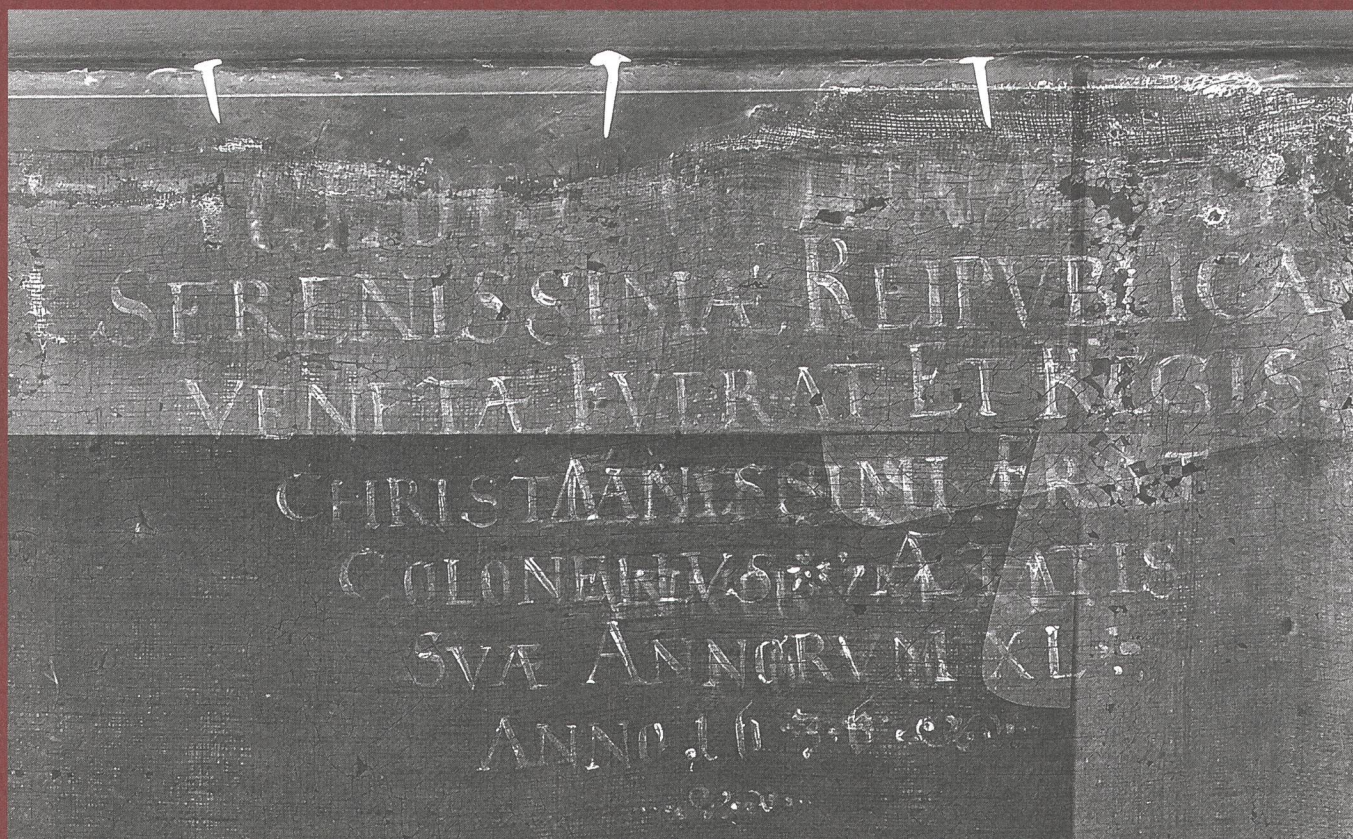 SERENISSIMÆ REIPVBLICÆ
VENETÆ FVERAT ET REGIS
CHRISTIANISSIMI ERAT
COLONELLVS ÆTATIS
SVÆ ANNORVM XL
ANNO